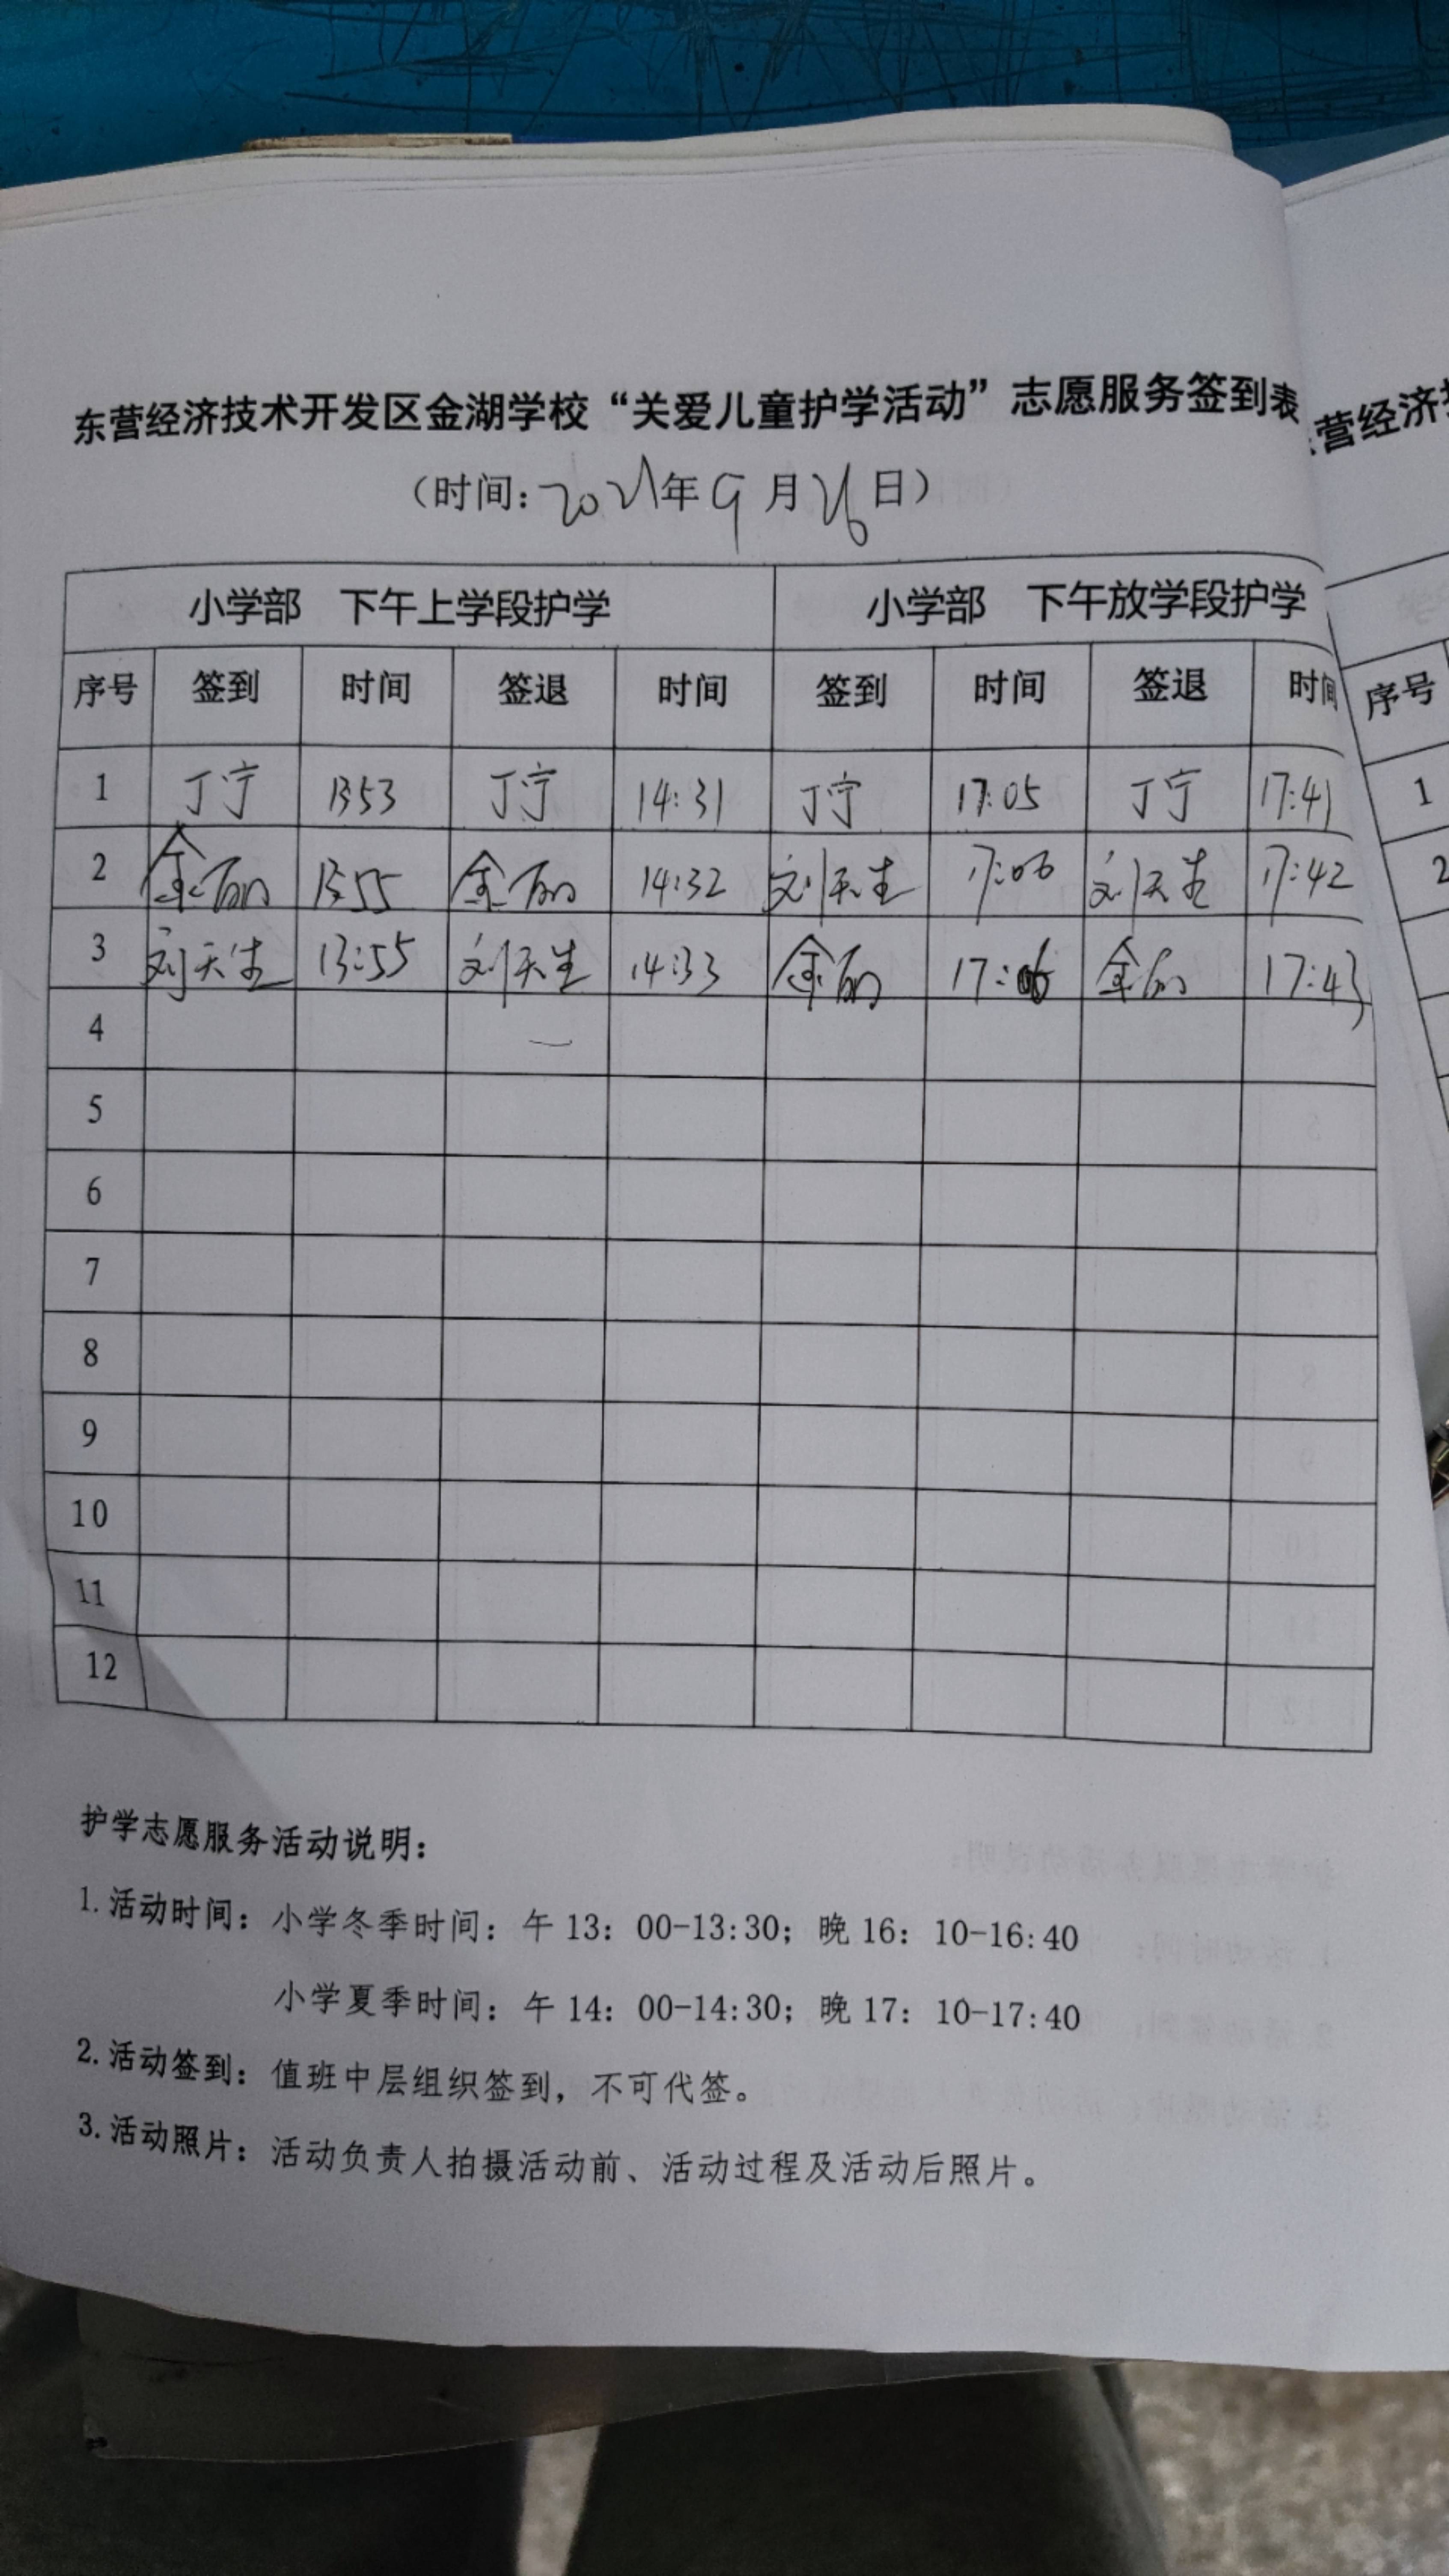 东营经济技术开发区金湖学校“关爱儿童护学活动”志愿服务签到表
（时间：2021年9月26日）
小学部 下午上学段护学 小学部 下午放学段护学
序号 签到 时间 签退 时间 签到 时间 签退 时间
1 丁宁 13:53 丁宁 14:31 丁宁 17:05 丁宁 17:41
2 金丽 13:55 金丽 14:32 刘天生 17:06 刘天生 17:42
3 刘天生 13:55 刘天生 14:33 金丽 17:06 金丽 17:43
4
5
6
7
8
9
10
11
12
护学志愿服务活动说明：
1.活动时间：小学冬季时间：午13：00-13:30；晚16：10-16:40
小学夏季时间：午14：00-14:30；晚17：10-17:40
2.活动签到：值班中层组织签到，不可代签。
3.活动照片：活动负责人拍摄活动前、活动过程及活动后照片。
营经济
序号
1
2